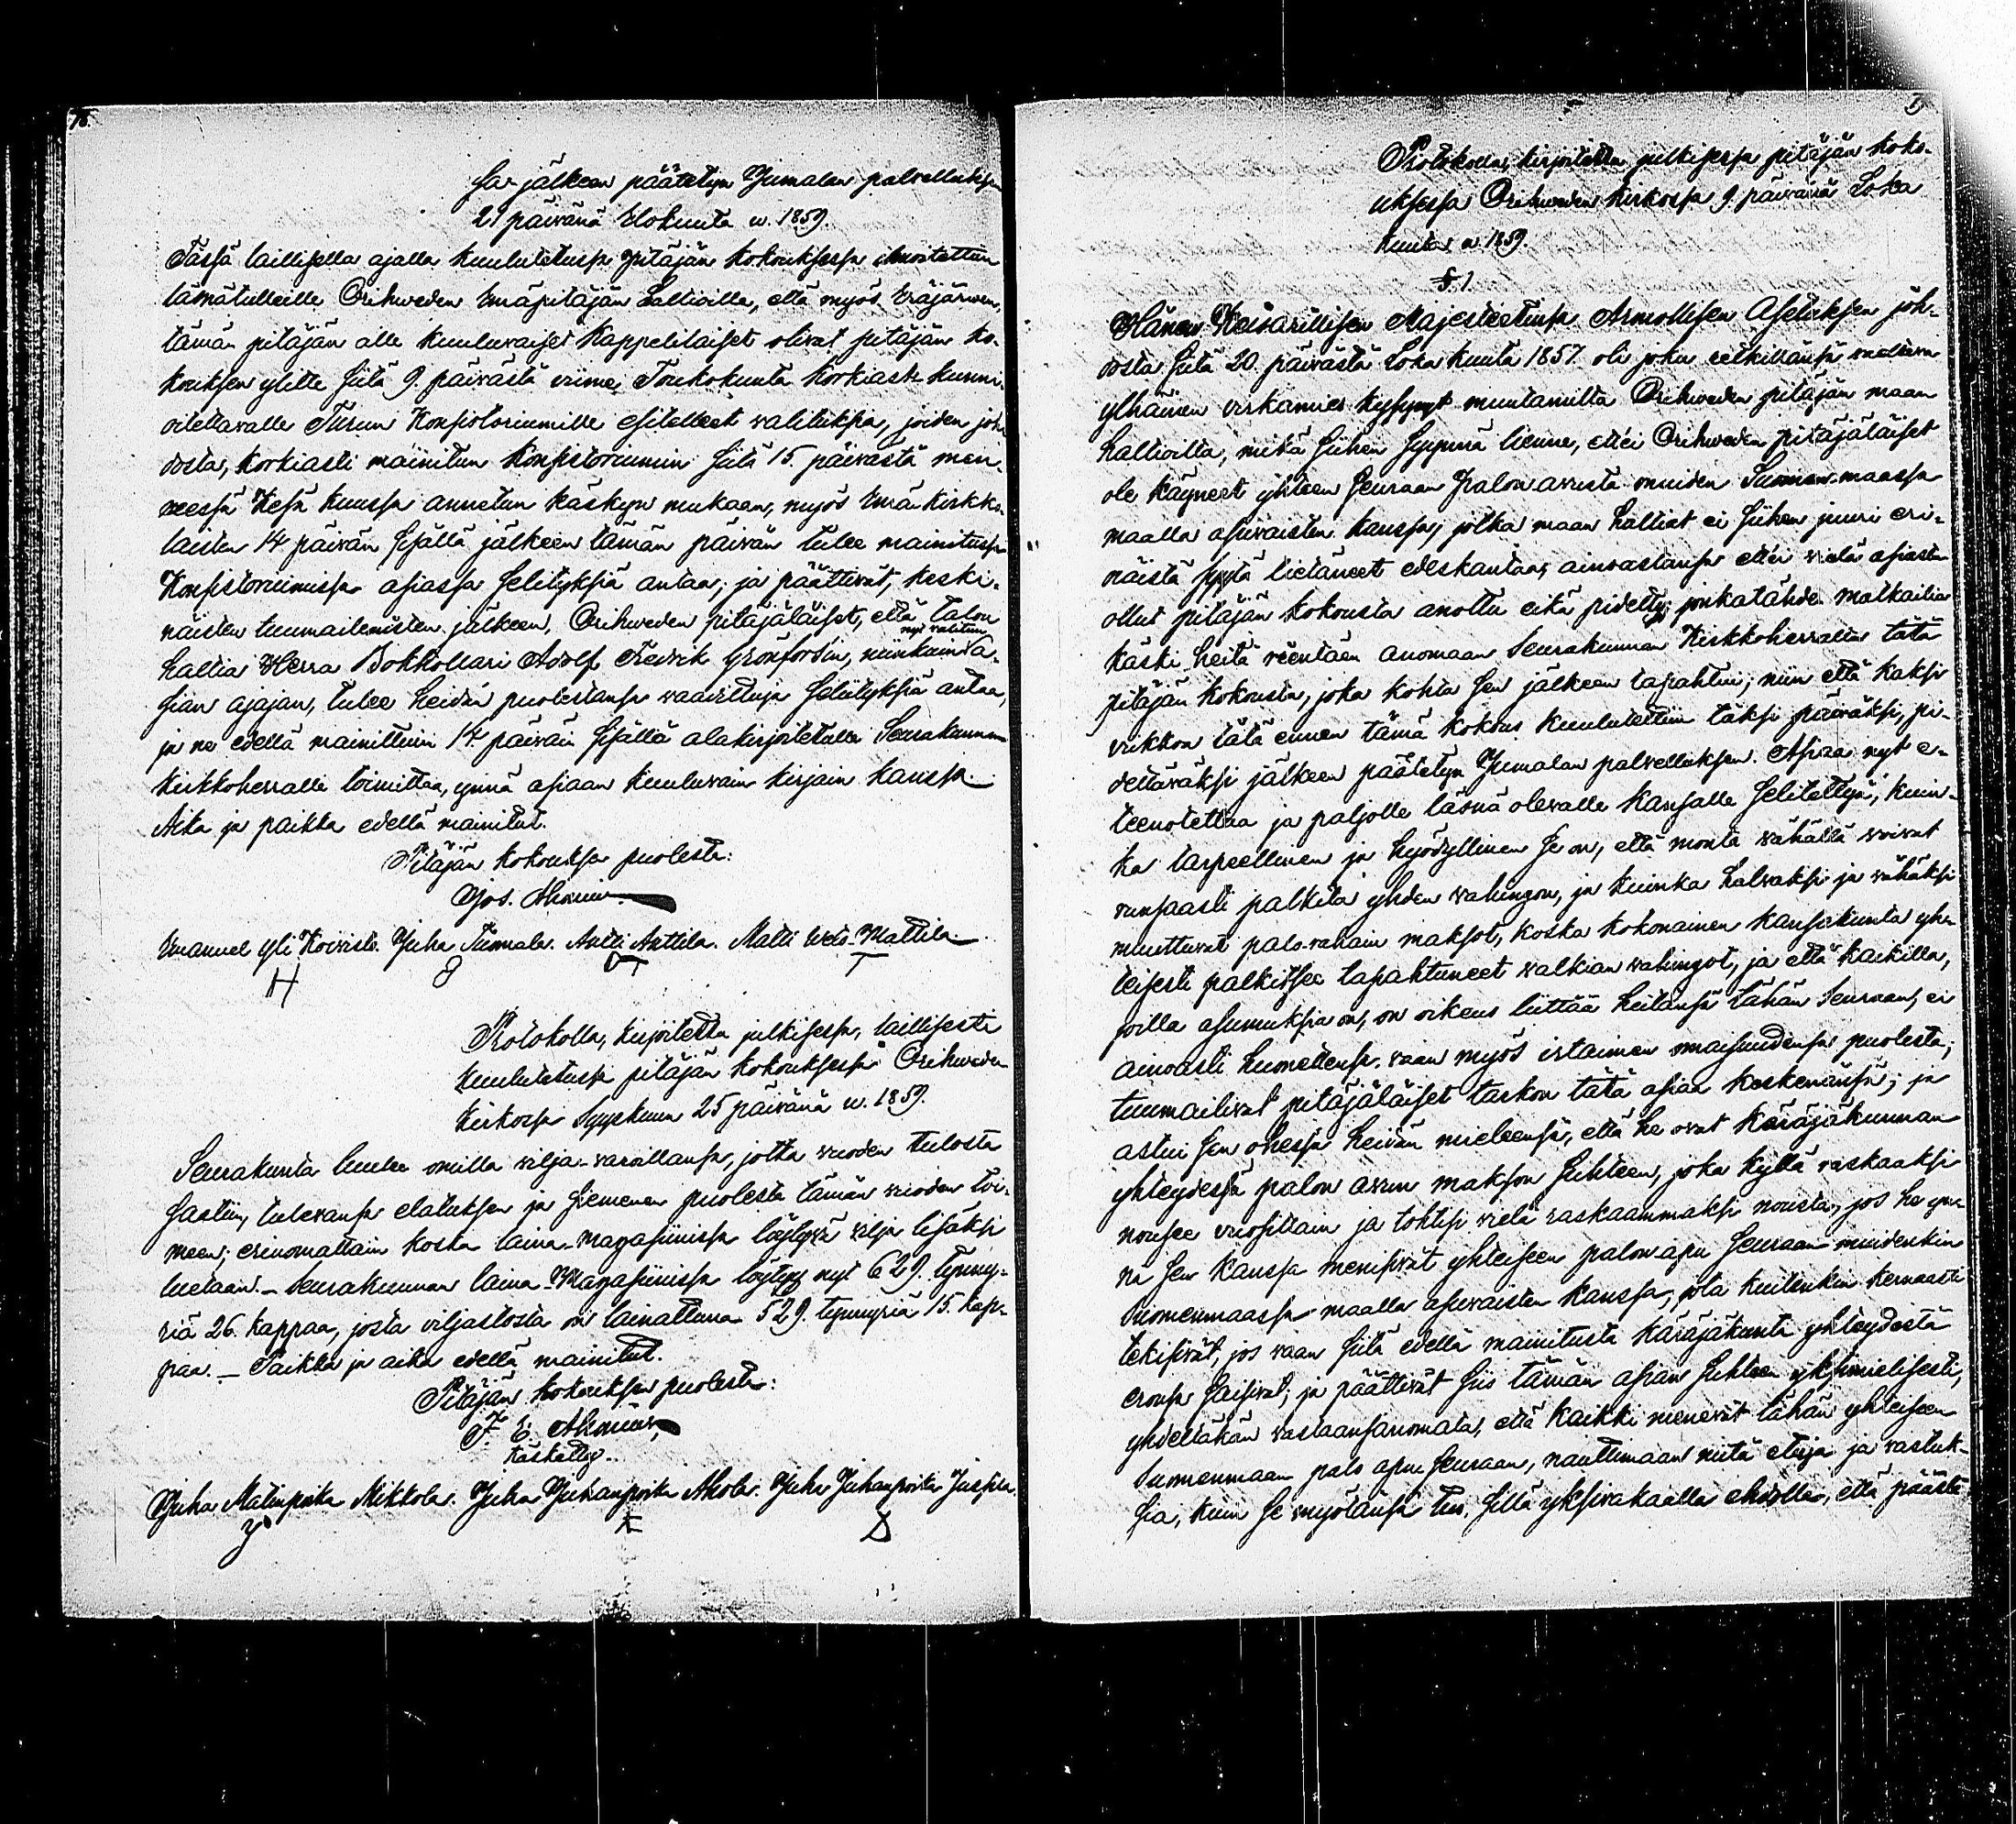 78.
sa jälkeen päätetyn Jumalan palvelluksen
21 päivänä Elokuuta w. 1859.
Tässä laillisella ajalla kuulutetussa pitäjän kokouksessa ilmoitettiin
läsnätulleille Orihweden Emäpitäjän Haltioille, että myös Eräjärwen,
tämän pitäjän alle kuuluwaiset Kappelilaiset oliwat pitäjän ko-
kouksen ylitte siitä 9. päivästä viime Toukokuuta korkiasti kunni-
oitettavalle Turun Konsistoriumille esitelleet valituksia, joiden joh-
dosta, korkiasti mainitun Konsistoriumin siitä 15. päivästä men-
neessä Kesä kuussa annetun käskyn mukaan, myös Emäkirkko-
laisten 14 päivän sisällä jälkeen tämän päivän tulee mainitussa
Konsistoriumissa asiassa selityksiä antaa; ja päättivät, keski-
näisten tuumailemisten jälkeen, Orihweden pitäjäläiset, että talon
nyt valitun
haltia Herra Bokhollari Adolf Fredrik Grönfors'in, niinkuin a-
sian ajajan, tulee heidän puolestansa vaadittuja selityksiä antaa,
ja ne edellä mainittuin 14 päiväin sisällä alakirjoitetulle Seurakunnan
kirkkoherralle toimittaa, ynnä asiaan kuuluvain kirjain kanssa.
Aika ja paikka edellä mainitut.
Pitäjän kokouksen puolesta:
Jos.
Emanuel Yli Koivisto. Juha Tunnala. Antti Anttila. Matti Mattila.
Protokolla, kirjoitettu julkisessa, laillisesti
kuulutetussa pitäjän kokouksessa Orihweden
kirkossa Syyskuun 25 päivänä w. 1859.
Seurakunta luulee omilla vilja-varoillansa, jotka vuoden tulosta
saatiin, tulevansa elatuksen ja siemenen puolesta tämän vuoden toi-
meen; erinomattain koska laina-magasiinissa löytyvä vilja lisäksi
luetaan. – Seurakunnan laina-Magasiinissa löytyy nyt 629. tynny-
riä 26. kappaa, josta viljastosta on lainattuna 529. tynnyriä 15. kap-
paa. – Paikka ja aika edellä mainitut.
Pitäjän kokouksen puolesta:
F. E.
käskettty.
Juha Matinpoika Mikkola. Juha Juhanpoika Ahola. Juha Juhanpoika Jussila.
Protokolla, kirjoitettu julkisessa pitäjän koko-
uksessa Orihweden kirkossa 9 päivänä Loka
kuuta w. 1859.
§. 1.
Hänen Keisarillisen Majesteetinsa Armollisen Asetuksen joh-
dosta siitä 20. päivästä Loka kuuta 1857. oli joku retkillänsä vaeltava
ylhäinen virkamies kysynyt muutamilta Orihweden pitäjän maan
haltioilta, mikä siihen syynnä lienne, ettei Orihweden pitäjäläiset
ole käyneet yhteen seuraan palon avusta muiden Suomen maassa
maalla asuvaisten kanssa, jotka maan haltiat ei siihen juuri eri-
näistä syytä tietäneet edeskantaa, ainoastansa ettei vielä asiasta
ollut pitäjän kokousta anottu eikä pidetty; jonkatähden matkailia
käski heitä rientäen anomaan Seurakunnan Kirkkoherralta tätä
pitäjän kokousta, joka kohta sen jälkeen tapahtui; niin että kaksi
viikkoa tätä ennen tämä kokous kuulutettiin täksi päiväksi, pi-
dettäväksi jälkeen päätetyn Jumalan palvelluksen. Asiaa nyt e-
teenotettua ja paljolle läsnä olevalle kansalle selitettyä, kuin-
ka tarpeellinen ja hyödyllinen se on, että monta vähällä voivat
runsaasti palkita yhden vahingon, ja kuinka halvaksi ja vähäksi
muuttuvat palo-rahain maksot, koska kokonainen kansakunta yh-
teisesti palkitsee tapahtuneet valkian vahingot, ja että kaikilla,
joilla asumuksia on, on oikeus liittää heitänsä tähän Seuraan, ei
ainoasti huonettensa vaan myös irtaimen omaisuudensa puolesta;
tuumailivat pitäjäläiset tarkon tätä asiaa keskenänsä; ja
astui sen ohessa heidän mieleensä, että he ovat käräjäkunnan
yhteydessä palon avun makson suhteen, joka kyllä raskaaksi
nousee vuosittain ja tohtisi vielä raskaammaksi nousta, jos he yn-
nä sen kanssa menisivät yhteiseen palon apu Seuraan muidenkin
Suomenmaassa maalla asuvaisten kanssa, jota kuitenkin kernaasti
tekisivät, jos vaan siitä edellä mainitusta käräjäkunta yhteydestä
eronsa saisivat; ja päättivät siis tämän asian suhteen yksimielisesti,
yhdeltäkän vastaansanomata, että kaikki menevät tähän yhteiseen
Suomenmaan palo apu Seuraan, nauttimaan niitä etuja ja rastuk-
sia, kuin se myötänsä tuo, sillä yksivakaalla ehdolla, että päästä